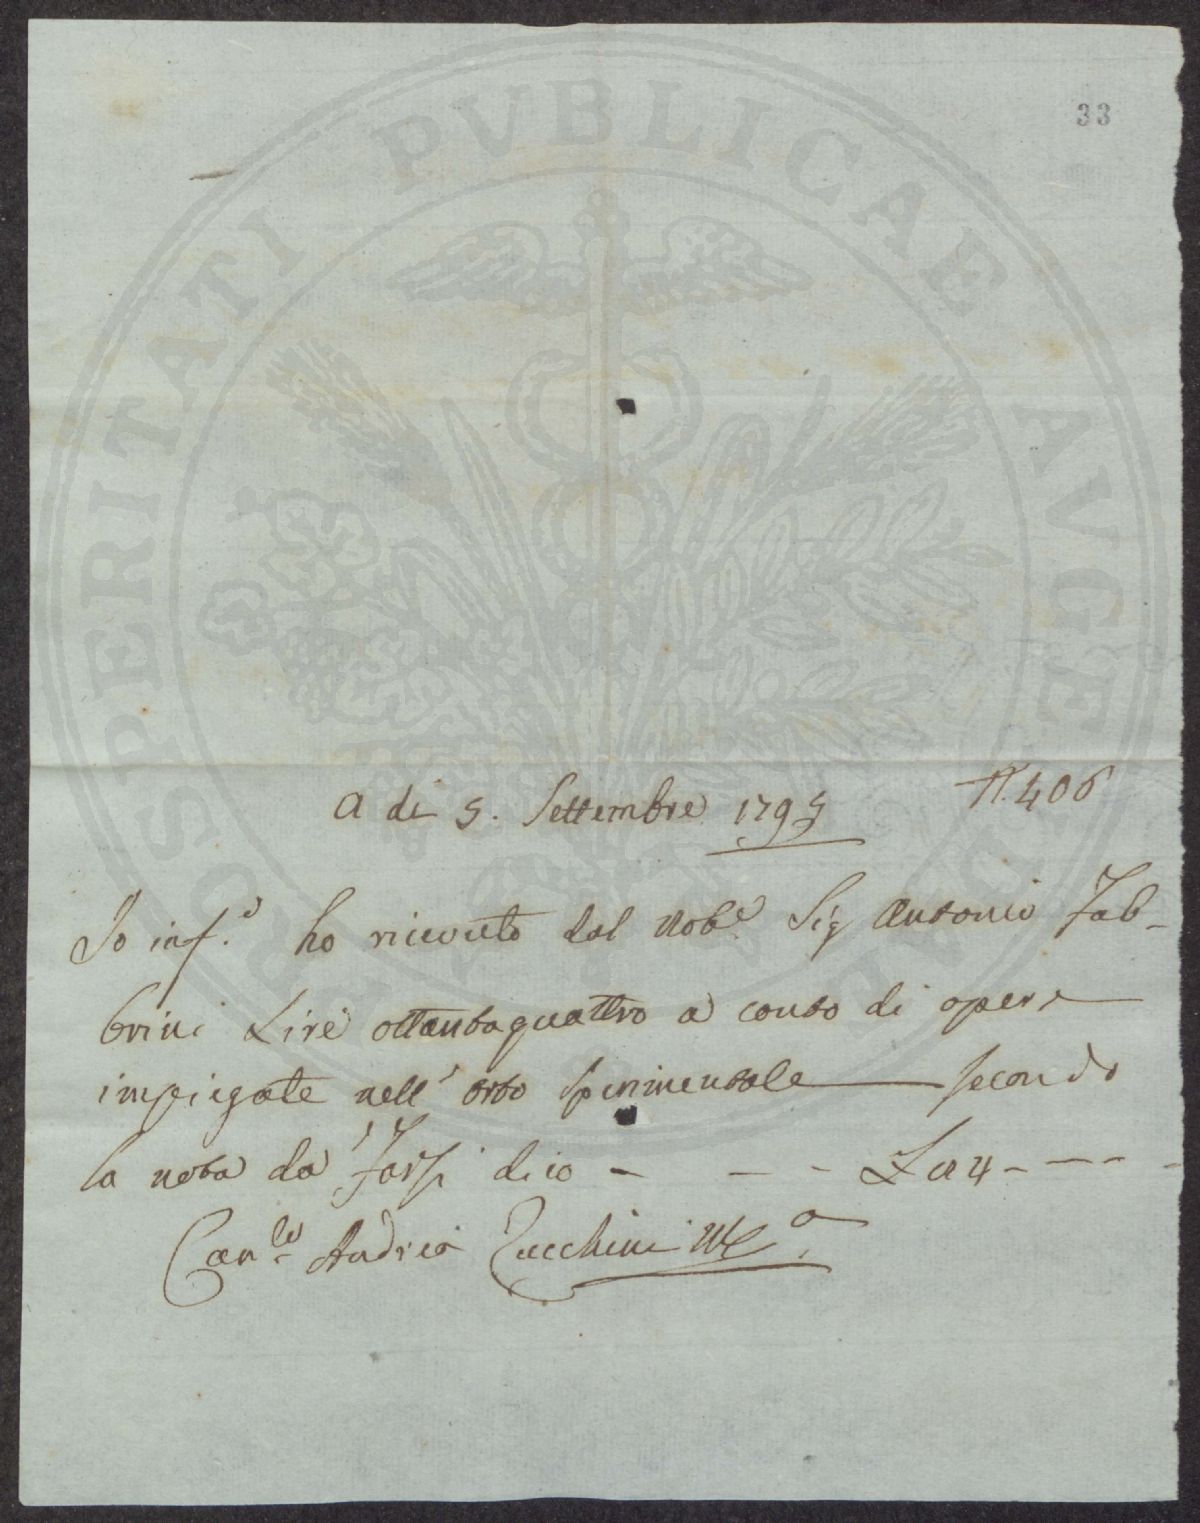 33
PROSPERITATI PVBLICAE AVGENDAE
N. 406
A di 5. Settembre 1795
Io inf.o ho ricevuto dal Nob.e Sig Antonio Fab-
brini Lire ottantaquattro a conto di opere
impiegate nell' orto sperimentale secondo
la nota da farsi dico - - - £ 84 - - - -
Can.co Andrea Zucchini